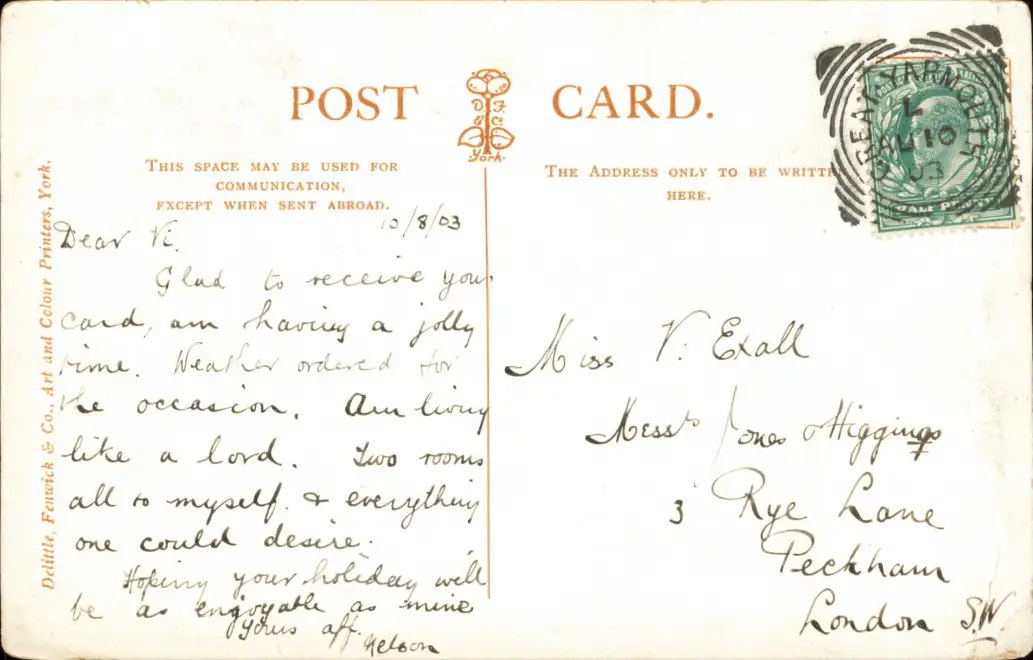 POST CARD.
D F
& C
York.
THIS SPACE MAY BE USED FOR
COMMUNICATION,
EXCEPT WHEN SENT ABROAD.
THE ADDRESS ONLY TO BE WRITTE
HERE.
GREAT YARMOUTH
L
AU 10
03
Delittle, Fenwick & Co., Art and Colour Printers, York.
10/8/03
Dear Vi,
Glad to receive your
card, am having a jolly
time. Weather ordered for
the occasion. Am living
like a lord. Two rooms
all to myself. & everything
one could desire.
Hoping your holiday will
be as enjoyable as mine
Yours aff.
Nelson
Miss V. Exall
Messrs Jones & Higgins
3 Rye Lane
Peckham
London S.W.